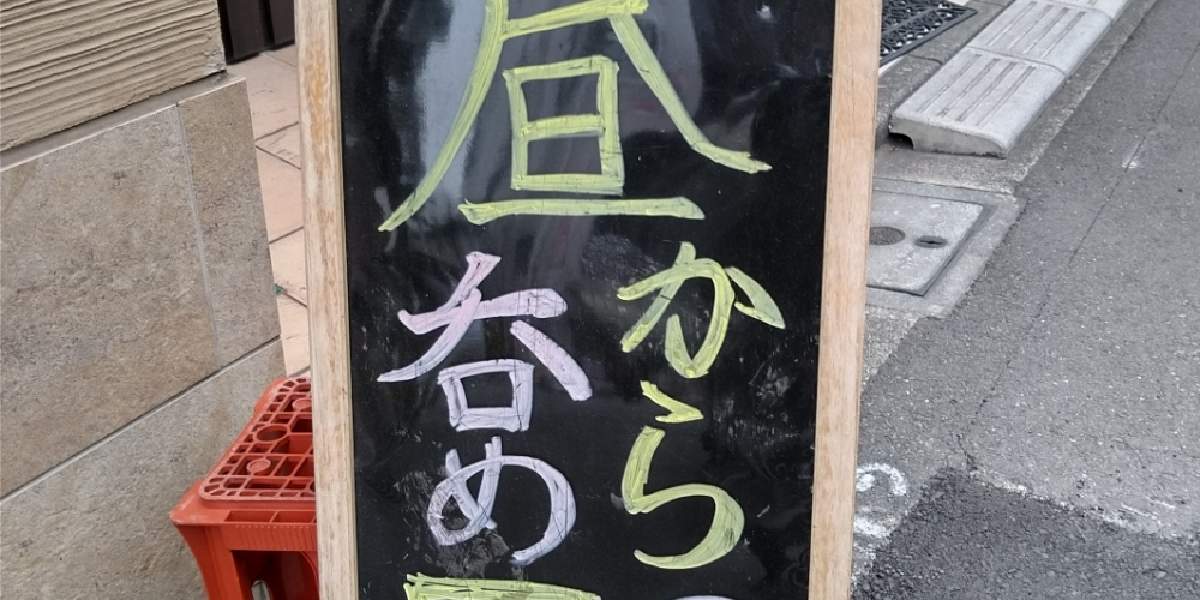 昼から
呑め